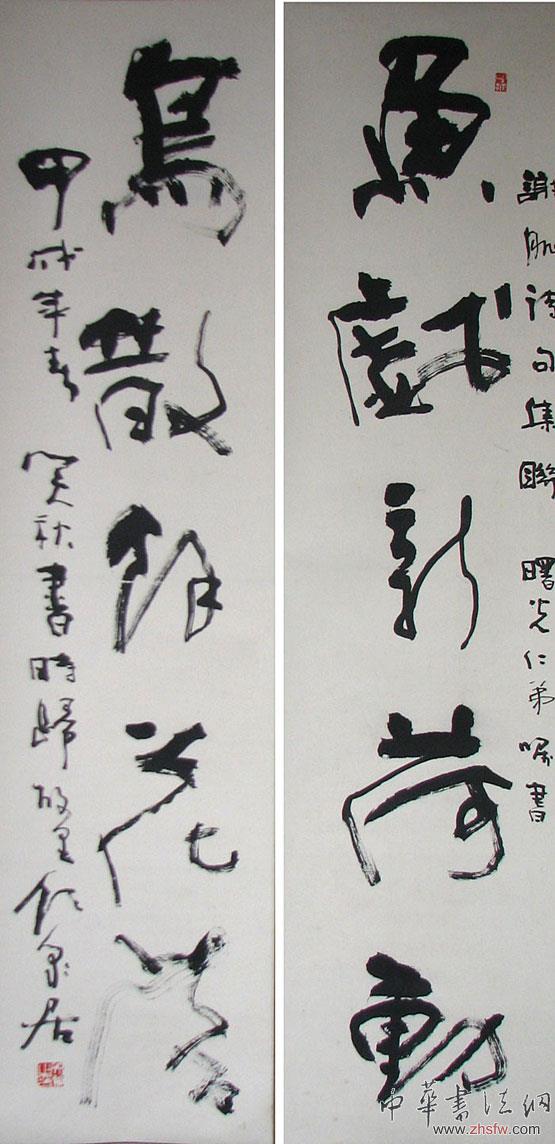 謝朓诗句集聯 曙光仁弟嘱書
魚戲新荷動
鳥散餘花落
甲戌年春 秋書時歸故里 泉居
中華書法網
www.zhsfw.com